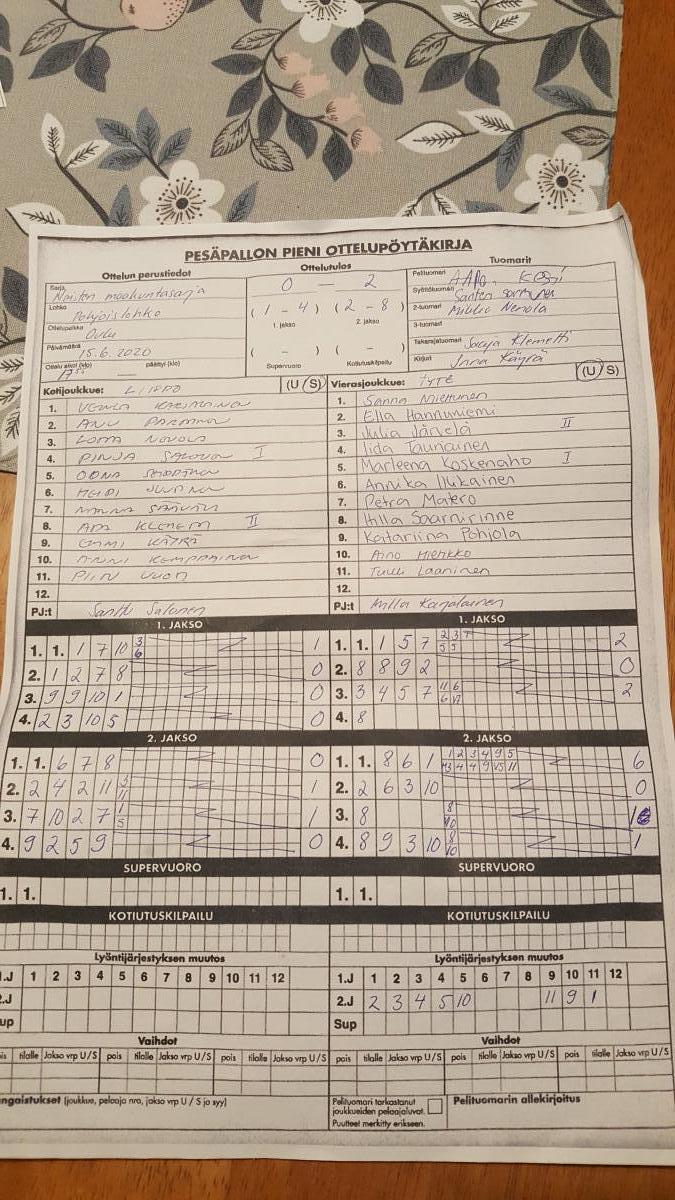 PESÄPALLON PIENI OTTELUPÖYTÄKIRJA
Ottelun perustiedot Ottelutulos Tuomarit
Sarja Naisten maakuntasarja 0 – 2 Pelituomari AAPO
Lohko Pohjoislohko (1 – 4) (2 – 8) Syöttötuomari Santeri
Ottelupaikka Oulu 1. jakso 2. jakso 2-tuomari Mikko Nenola
Päivämäärä 15.6.2020 3-tuomari
( – ) ( – ) Takarajatuomari Saraja Klemetti
Ottelu alkoi (klo) päättyi (klo) Supervuoro Kotiutuskilpailu Kirjuri Jaana Käyrä
Kotijoukkue: LIPPO (U/S) Vierasjoukkue: TYTE (U/S)
1. VENLA 1. Sanna Miettunen
2. ANU PARMAN 2. Ella Hannuniemi
3. 3. Julia Järvelä II
4. PINJA I 4. Iida Tauriainen
5. OONA 5. Marleena Koskenaho I
6. HEIDI 6. Annika Ilikainen
7. 7. Petra Matero
8. II 8. Hilla Saarnirinne
9. 9. Katariina Pohjola
10. ANNI KEMPPAINEN 10. Aino Hiehkko
11. 11. Tuuli Laaninen
12. 12.
PJ:t Santtu Salonen PJ:t Milla Karjalainen
1. JAKSO 1. JAKSO
1. 1. 1 7 10 3 6 1 1. 1. 1 5 7 2 3 7 5 5 2
2. 1 2 7 8 0 2. 8 8 9 2 0
3. 9 9 10 1 0 3. 3 4 5 7 11 6 2
4. 2 3 10 5 0 4. 8
2. JAKSO 2. JAKSO
1. 1. 6 7 8 0 1. 1. 8 6 1 1 2 3 4 9 5 6
2. 2 4 2 11 1 2. 2 6 3 10 0
3. 7 10 2 7 1 5 1 3. 8 8 10 1
4. 9 2 5 9 0 4. 8 9 3 10 8 10 1
SUPERVUORO SUPERVUORO
1. 1. 1. 1.
KOTIUTUSKILPAILU KOTIUTUSKILPAILU
Lyöntijärjestyksen muutos Lyöntijärjestyksen muutos
.J 1 2 3 4 5 6 7 8 9 10 11 12 1.J 1 2 3 4 5 6 7 8 9 10 11 12
.J 2.J 2 3 4 5 10 11 9 1
up Sup
Vaihdot Vaihdot
is tilalle Jakso vrp U/S pois tilalle Jakso vrp U/S pois tilalle Jakso vrp U/S pois tilalle Jakso vrp U/S pois tilalle Jakso vrp U/S pois tilalle Jakso vrp U/S
ngaistukset (joukkue, pelaaja nro, jakso vrp U / S ja syy) Pelituomari tarkastanut Pelituomarin allekirjoitus
joukkueiden pelaajaluvat.
Puutteet merkitty erikseen.